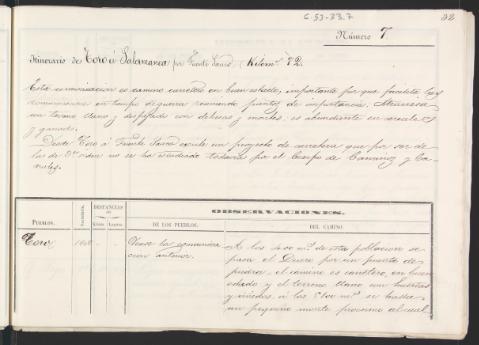 C-53-33.7
32
Número 7
Itinerario de Toro á Salamanca por Fuente Sauco (Kilomº 72.
Esta comunicacion es camino carretero en buen estado, importante por que facilita las
comunicaciones en tiempo de guerra reuniendo puntos de importancia. Atraviesa
un terreno llano y despejado con dehesas y montes: es abundante en cereales
y ganado.
Desde Toro á Fuente Sauco existe un proyecto de carretera que por ser de
las de 3er orden no se ha estudiado todavia por el Cuerpo de Caminos y Ca-
nales.
PUEBLOS.
DISTANCIAS
OBSERVACIONES.
DE LOS PUEBLOS.
DEL CAMINO
Toro
Véase la comunica
cion anterior.
A los 400 mº de esta poblacion se
pasa el Duero por un puente de
piedra, el camino es carretero, en buen
estado y el terreno llano con huertas
y viñedos, á los mº se halla
un pequeño monte proximo al cual